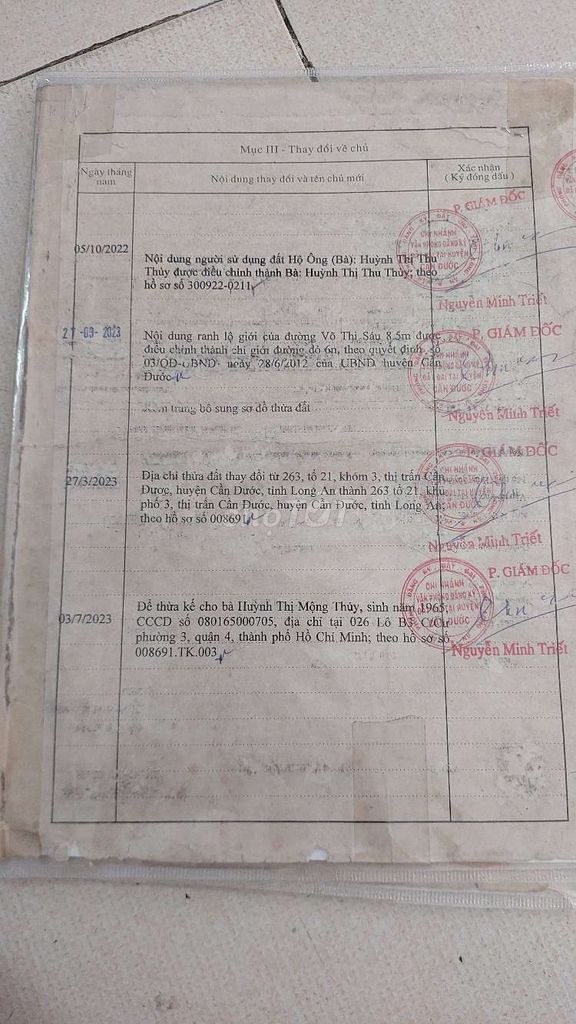 Mục III - Thay đổi về chủ
Ngày tháng năm
Nội dung thay đổi và tên chủ mới
Xác nhận
( Ký đóng dấu )
05/10/2022
Nội dung người sử dụng đất Hộ Ông (Bà): Huỳnh Thị Thu
Thủy được điều chỉnh thành Bà: Huỳnh Thị Thu Thủy; theo
hồ sơ số 300922-0211
P. GIÁM ĐỐC
CHI NHÁNH
VĂN PHÒNG ĐĂNG KÝ
ĐẤT ĐAI TẠI HUYỆN
CẦN ĐƯỚC
Nguyễn Minh Triết
27-03-2023
Nội dung ranh lộ giới của đường Võ Thị Sáu 8,5m được
điều chỉnh thành chỉ giới đường đỏ 6m, theo quyết định số
03/QĐ-UBND ngày 28/6/2012 của UBND huyện Cần
Đước
trang bổ sung sơ đồ thửa đất
P. GIÁM ĐỐC
CẦN ĐƯỚC
Nguyễn Minh Triết
27/3/2023
Địa chỉ thửa đất thay đổi từ 263, tổ 21, khóm 3, thị trấn Cần
Được, huyện Cần Đước, tỉnh Long An thành 263 tổ 21, khu
phố 3, thị trấn Cần Đước, huyện Cần Đước, tỉnh Long An;
theo hồ sơ số 008691
GIÁM ĐỐC
CHI NHÁNH
Nguyễn Minh Triết
03/7/2023
Để thừa kế cho bà Huỳnh Thị Mộng Thủy, sinh năm 1965,
CCCD số 080165000705, địa chỉ tại 026 Lô B3 C/Cư
phường 3, quận 4, thành phố Hồ Chí Minh; theo hồ sơ số
008691.TK.003
P. GIÁM ĐỐC
CHI NHÁNH
VĂN PHÒNG ĐĂNG KÝ
ĐẤT ĐAI TẠI HUYỆN
CẦN ĐƯỚC
Nguyễn Minh Triết